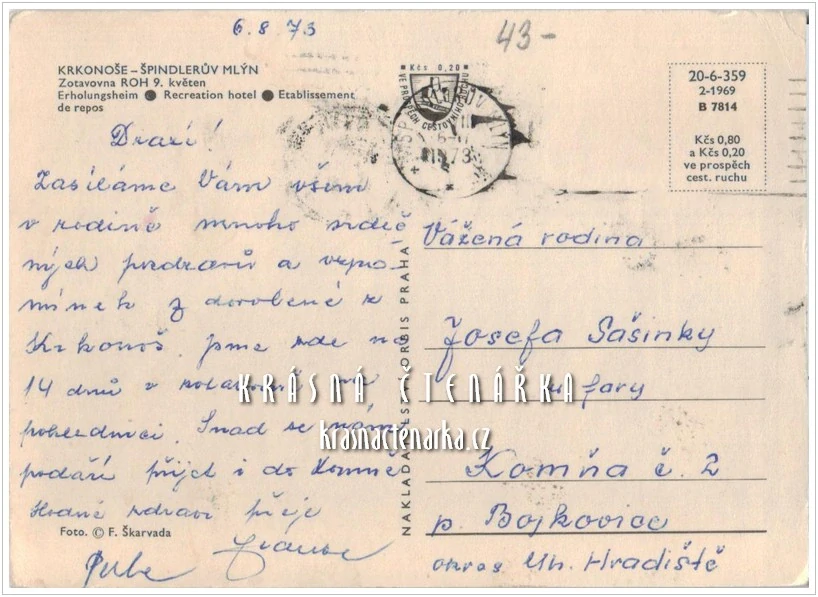 6.8.73
43-
KRKONOŠE – ŠPINDLERŮV MLÝN
Zotavovna ROH 9. květen
Erholungsheim ● Recreation hotel ● Etablissement
de repos
Kčs 0,20
VE PROSPĚCH CESTOVNÍHO RUCHU
20-6-359
2-1969
B 7814
Kčs 0,80
a Kčs 0,20
ve prospěch
cest. ruchu
Drazí!
Zasíláme Vám všem
v rodině mnoho srdeč
ných pozdravů a vzpo
mínek z dovolené z
Krkonoš. Jsme zde na
14 dnů v zotavovně na
pohlednici. Snad se nám
podaří přijet i do Komně
Hodně zdraví přeje
Foto. © F. Škarvada
NAKLADATELSTVÍ ORBIS PRAHA
Vážená rodina
Josefa Sašinky
u fary
Komňa č. 2
p. Bojkovice
okres Uh. Hradiště
KRÁSNÁ ČTENÁŘKA
krasnactenarka.cz